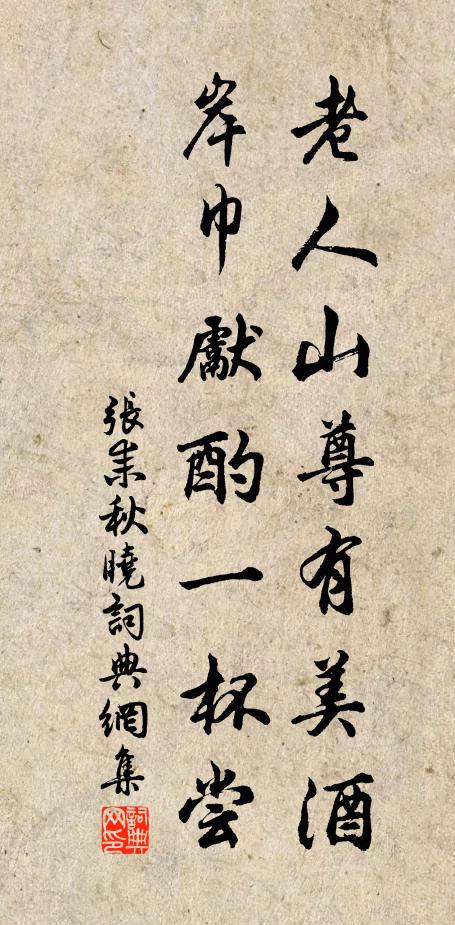 老人山尊有美酒
岸巾獻酌一杯嘗
張耒秋曉詞典網集
詞典網印